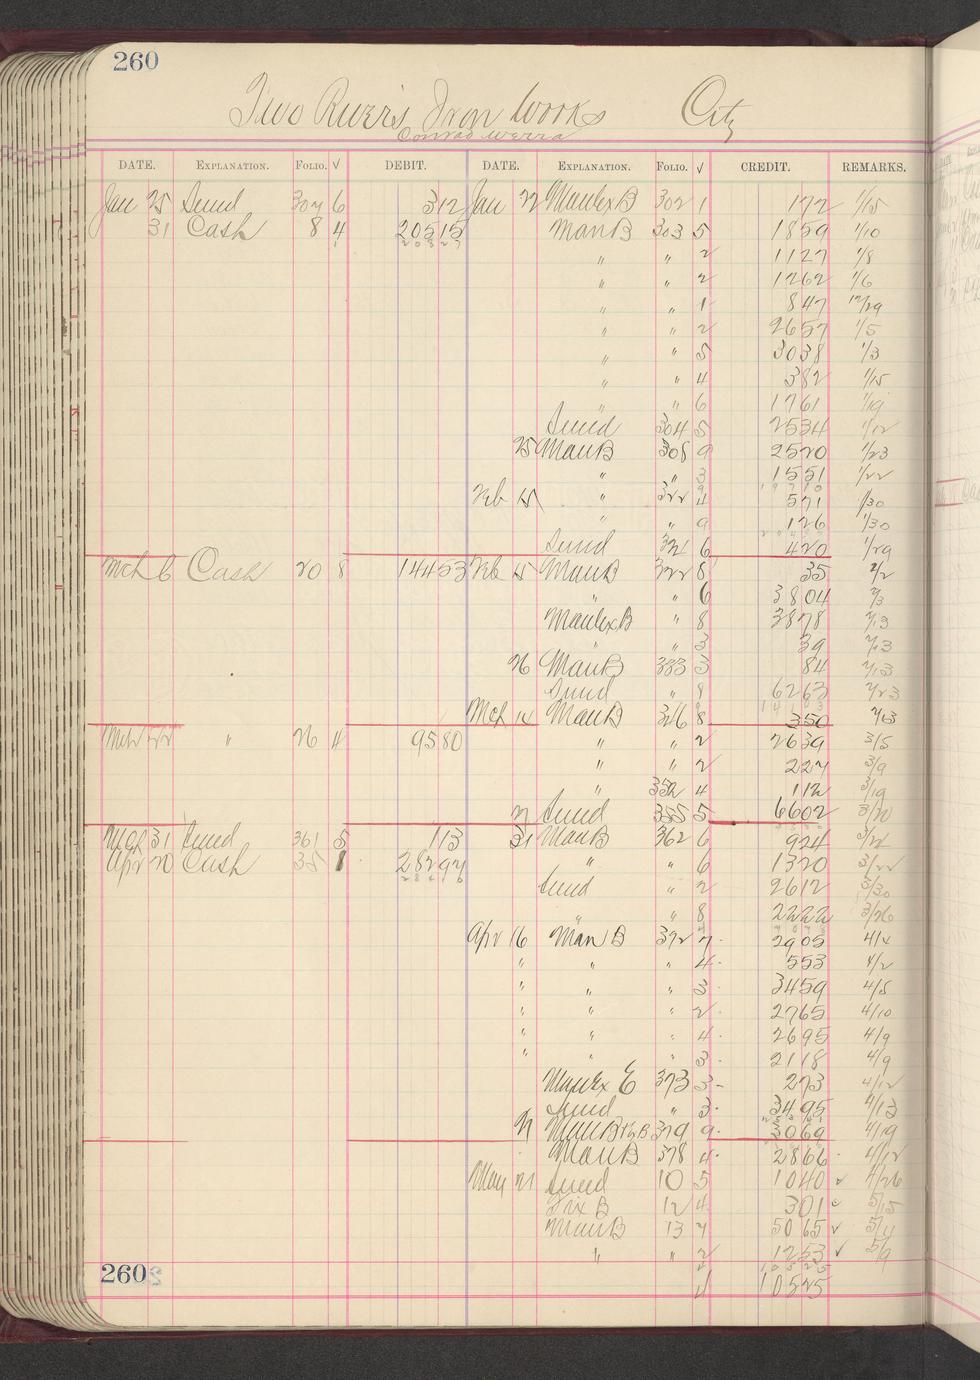 260
Two Rivers Iron Works City
Conrad Werra
DATE. EXPLANATION. FOLIO. √ DEBIT. DATE. EXPLANATION. FOLIO. √ CREDIT. REMARKS.
Jan 25 Sund 307 6 312 Jan 22 ManExB 302 1 172 1/15
31 Cash 8 4 20515 ManB 303 5 1859 1/10
" " 2 1127 1/8
" " 2 1262 1/6
" " 1 847 12/29
" " 2 2657 1/5
" " 5 3038 1/3
" " 4 382 1/15
" " 6 1761 1/19
Sund 304 5 2534 1/12
25 ManB 308 9 2520 1/23
" " 3 1551 1/22
Feb 15 " 322 4 571 1/30
" " 9 126 1/30
Sund 321 6 420 1/29
Mch 6 Cash 20 8 14453 Feb 15 ManB 322 8 35 2/2
" " 6 3804 2/3
ManExB " 8 3878 2/13
" " 3 39 2/3
26 ManB 333 3 84 2/13
Sund " 8 6263 2/23
Mch 14 ManB 346 8 350 2/13
Mch 22 " 26 4 9580 " " 2 2639 3/5
" " 2 227 3/9
" 352 4 112 3/19
21 Sund 355 5 6602 3/20
Mch 31 Sund 361 5 113 31 ManB 362 6 924 3/24
Apr 20 Cash 35 1 28297 " " 6 1320 3/22
Sund " 2 2612 3/30
" " 8 2222 3/26
Apr 16 Man B 372 7 2905 4/4
" " " 4 553 4/2
" " " 3 3459 4/5
" " " 2 2765 4/10
" " " 4 2695 4/9
" " " 3 2118 4/9
ManEx E 373 3 273 4/12
Sund " 3 3495 4/13
21 379 9 3069 4/19
ManB 378 4 2866 4/12
May 21 Sund 10 5 1040 √ 4/26
B 12 4 301 √ 5/15
ManB 13 7 5065 √ 5/4
" " 2 1253 √ 5/9
10525
4 10525
260